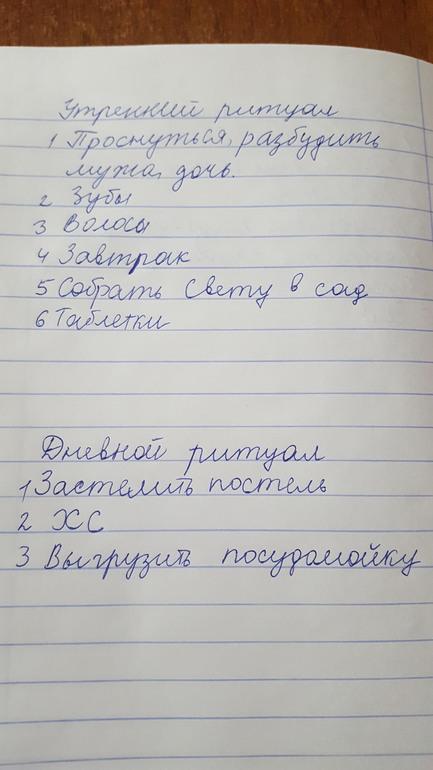 Утренний ритуал
1 Проснуться, разбудить
мужа, дочь.
2 Зубы
3 Волосы
4 Завтрак
5 Собрать Свету в сад
6 Таблетки
Дневной ритуал
1 Застелить постель
2 ХС
3 Выгрузить посудомойку